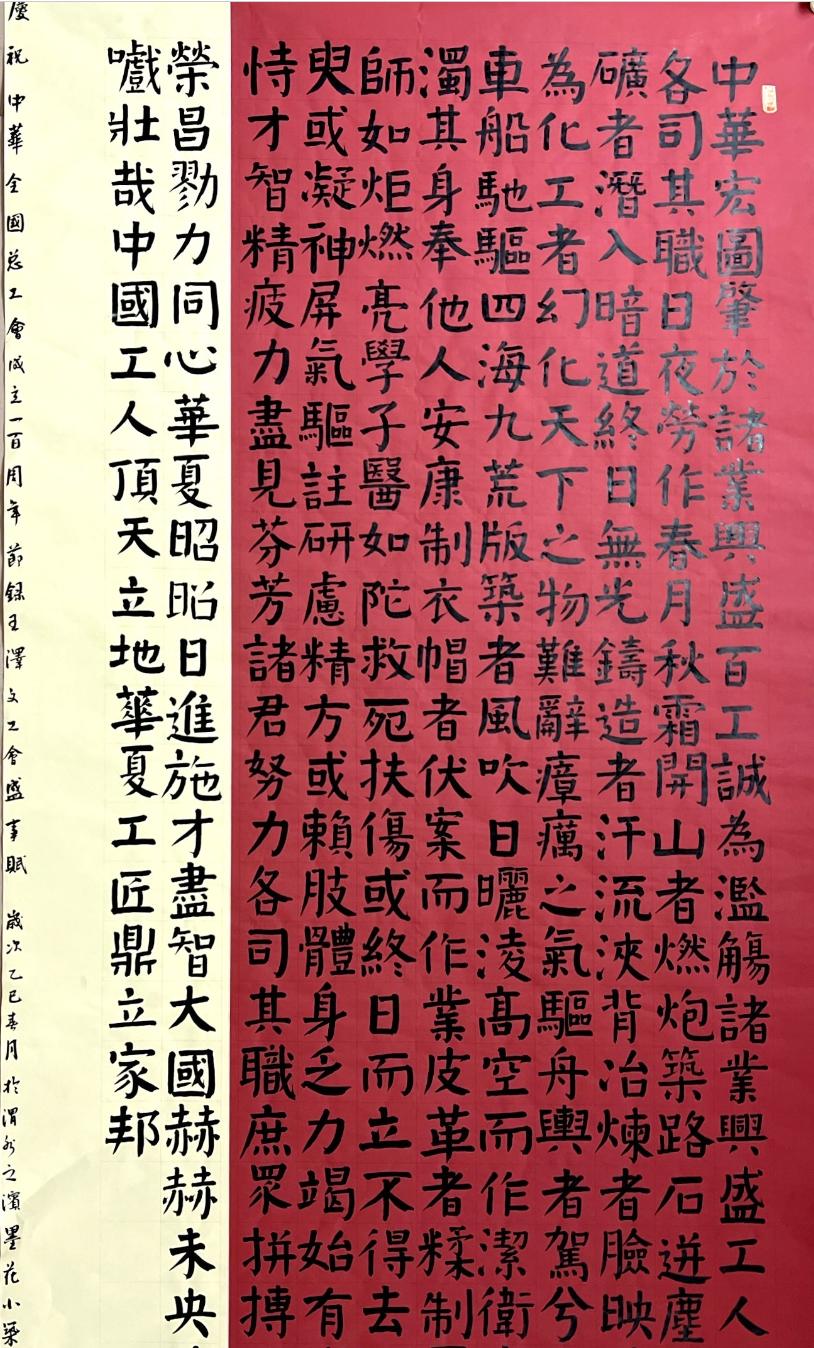 中華宏圖肇於諸業興盛百工誠為濫觴諸業興盛工人
各司其職日夜勞作春月秋霜開山者燃炮築路石迸塵
礦者潛入暗道終日無光鑄造者汗流浹背冶煉者臉映
為化工者幻化天下之物難辭瘴癘之氣驅舟輿者駕兮
車船馳驅四海九荒版築者風吹日曬淩高空而作潔衛
濁其身奉他人安康制衣帽者伏案而作業皮革者糅制
師如炬燃亮學子醫如陀救死扶傷或終日而立不得去
臾或凝神屏氣驅註研慮精方或賴肢體身乏力竭始有
恃才智精疲力盡見芬芳諸君努力各司其職庶眾拼摶
榮昌勠力同心華夏昭昭日進施才盡智大國赫赫未央
嚱壯哉中國工人頂天立地華夏工匠鼎立家邦
慶祝中華全國总工會成立一百周年節録王澤文工會盛事賦 歲次乙巳春月於渭水之濱墨花小築